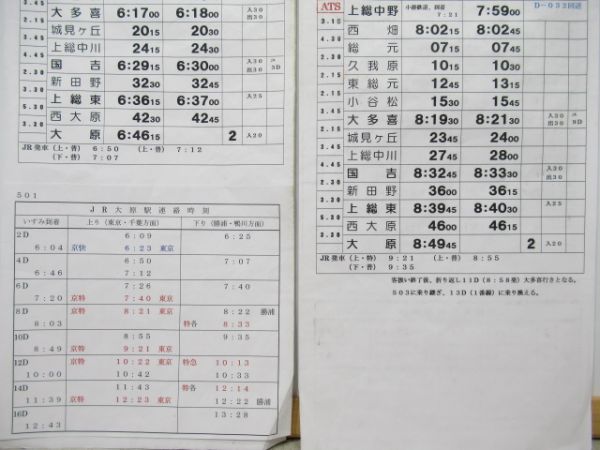 3.45
大多喜 6:17 00 6:18 00 入30 出30
城見ヶ丘 20 15 20 30
4.45
上総中川 24 15 24 30
国吉 6:29 15 6:30 00 入30 出30
新田野 32 30 32 45
上総東 6:36 15 6:37 00 入25
西大原 42 30 42 45
3.30
大原 6:46 15 2 入20
JR発車 (上・普) 6:50 (上・普) 7:12
(下・普) 7:07
501
JR大原駅連絡時刻
いすみ到着 上り (東京・千葉方面) 下り (勝浦・鴨川方面)
2D 6:09
6:04 京快 6:23 東京 6:25
4D 6:50 7:07
6:46 7:12
6D 7:26 7:40
7:20 京特 7:40 東京
8D 京特 8:21 東京 8:22 勝浦
8:03 特各 8:33
10D 8:55 9:35
8:49 京特 9:21 東京
12D 京特 10:22 東京 特急 10:13
10:00 10:42 10:33
14D 11:43 特各 12:14
11:39 京特 12:23 東京 12:22 勝浦
16D 13:28
12:43
ATS 上総中野 小湊鉄道、回送 7:21 7:59 00 D-032回送
3.15
西畑 8:02 15 8:02 45
4.30
総元 07 15 07 45
久我原 10 15 10 30
東総元 12 45 13 15
小谷松 15 30 15 45
大多喜 8:19 30 8:21 30 入30 出30
城見ヶ丘 23 45 24 00
上総中川 27 45 28 00
国吉 8:32 45 8:33 30 入30 出30
新田野 36 00 36 15
上総東 8:39 45 8:40 30 入25
西大原 46 00 46 15
3.30
大原 8:49 45 2 入20
JR発車 (上・特) 9:21 (上・普) 8:55
(下・普) 9:35
客扱い終了後、折り返し11D (8:58発) 大多喜行きとなる。
503に乗り継ぎ、13D (1番線) に乗り換える。